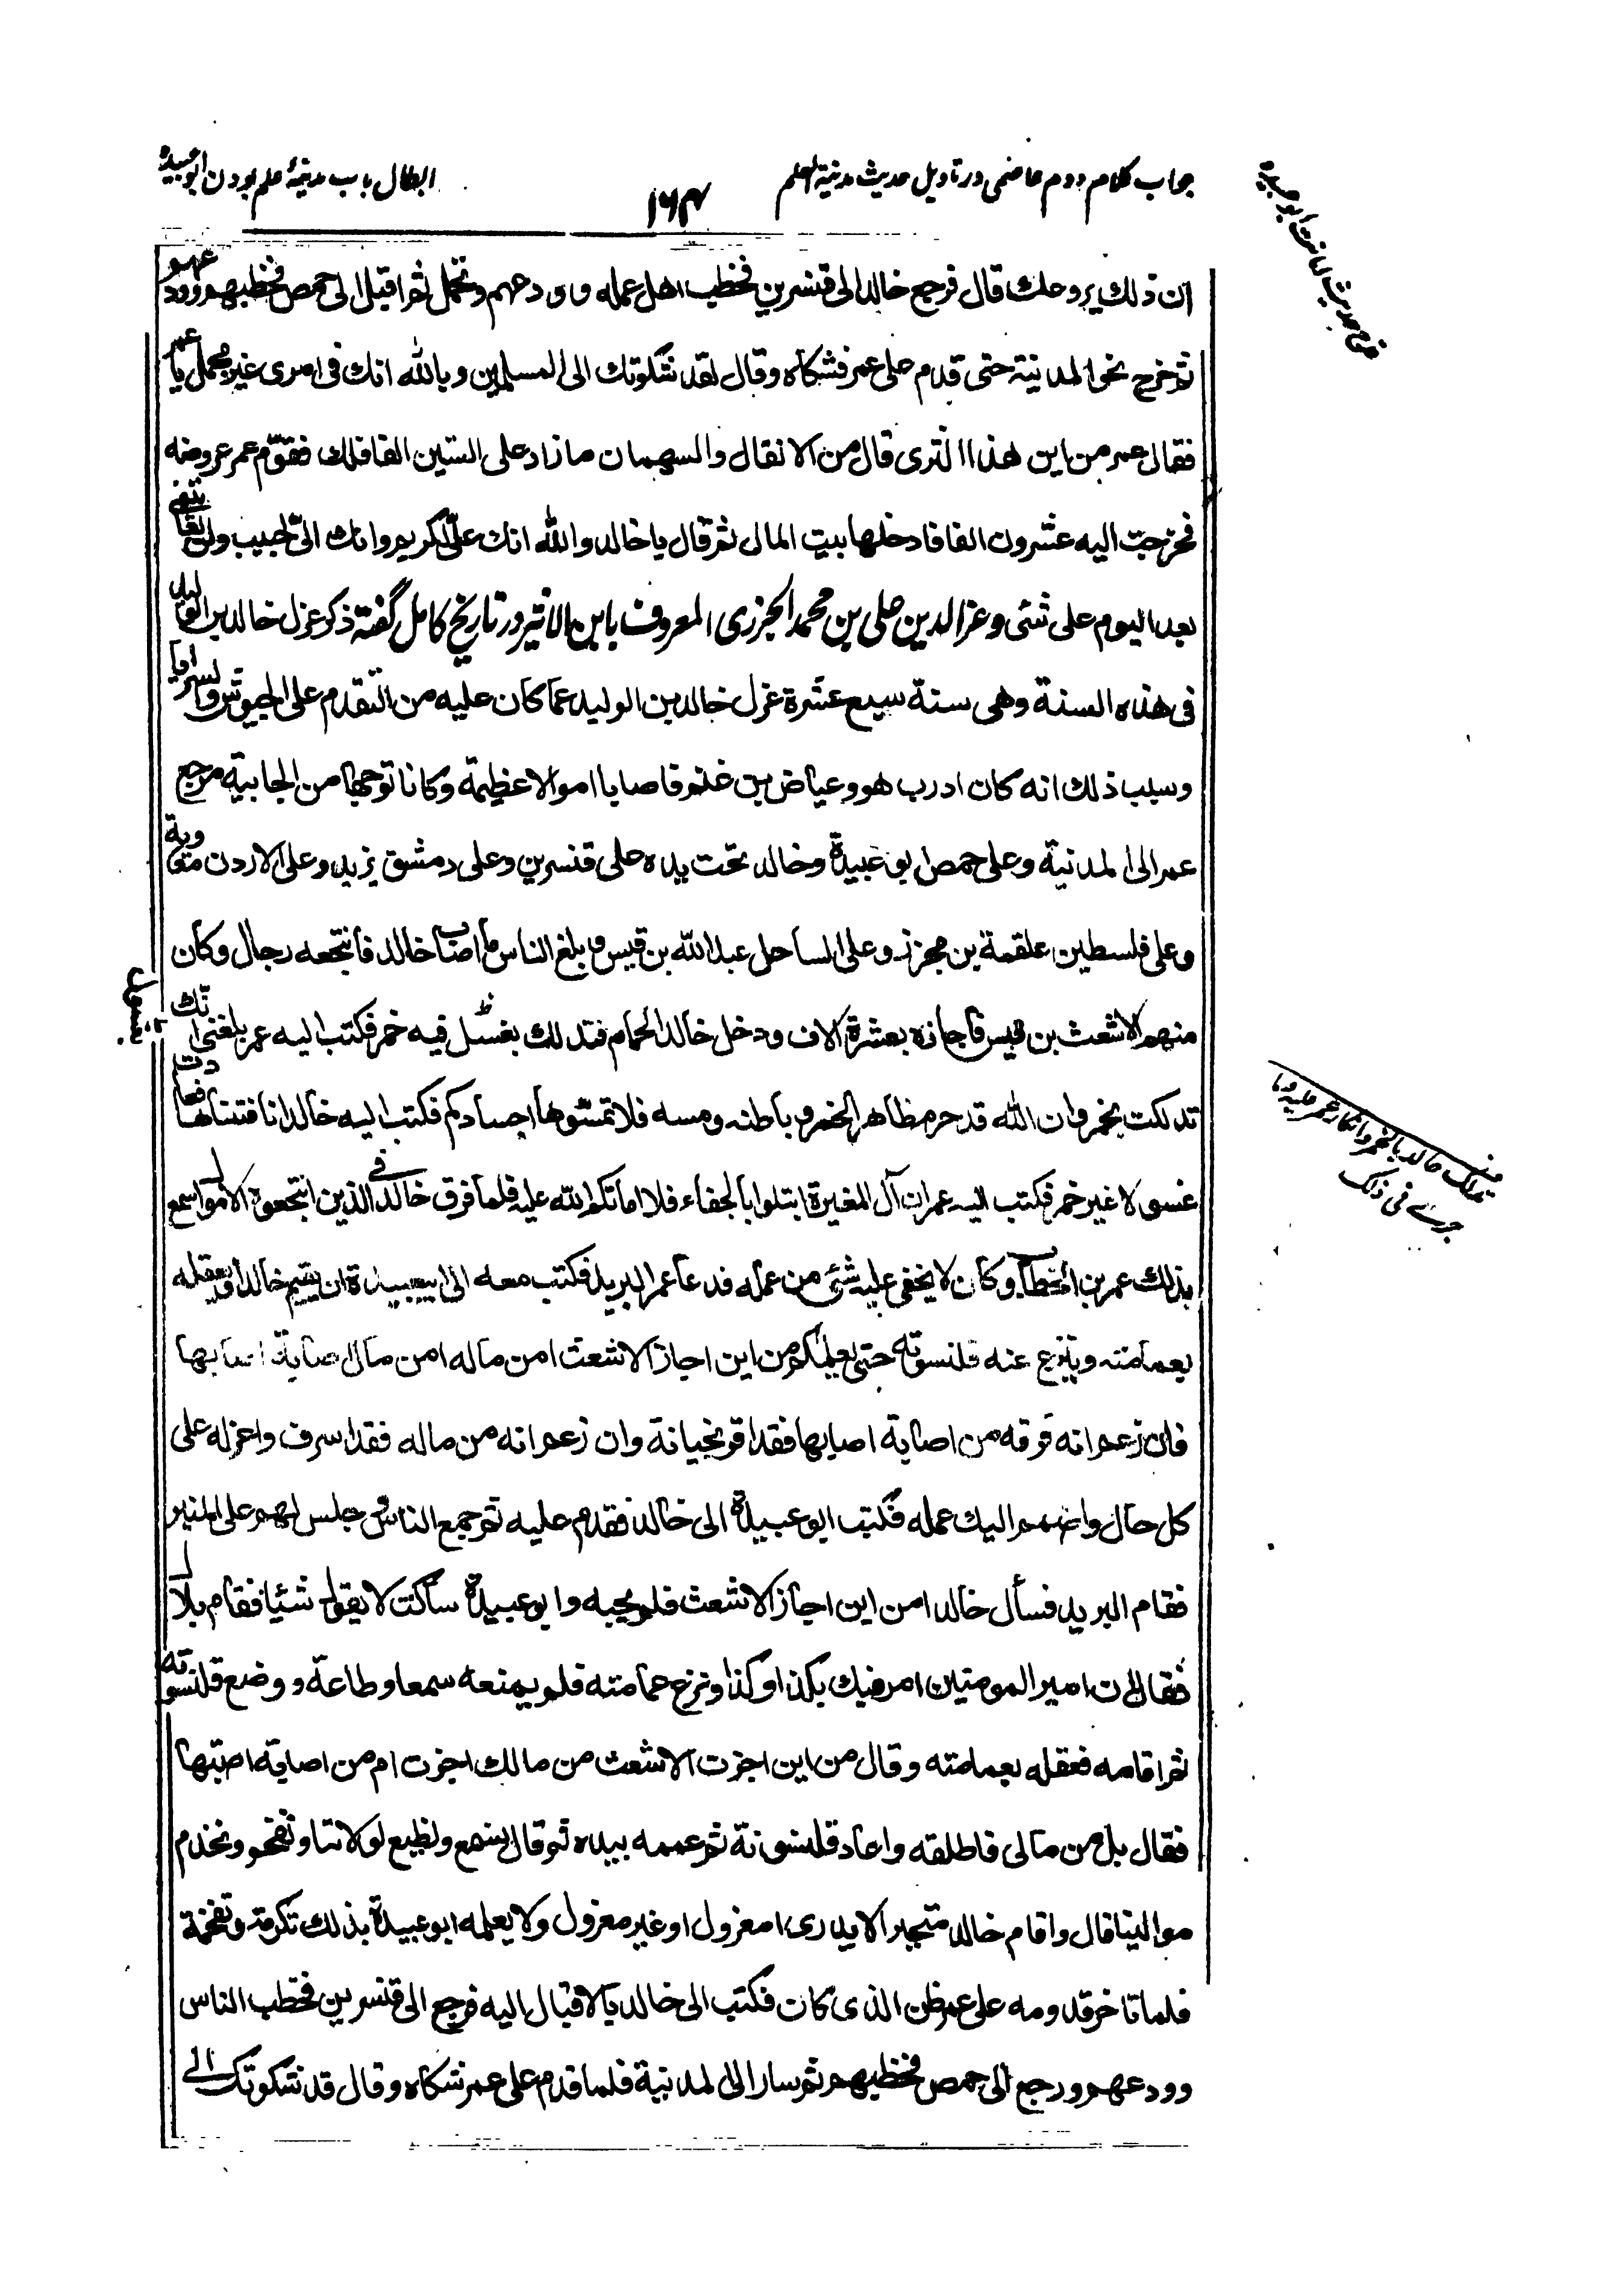 جواب کلام دوم عاصمی در تاویل حدیث مدینة العلم
۱۶۴
ابطال باب مدینهٔ علم بودن ابو عبیده
ان ذلك يروعك قال فرجع خالد الى قنسرين فخطب اهل عمله وودعهم وتحمل ثم اقبل الى حمص فخطبهم وودعهم
ثم خرج نحو المدينة حتى قدم على عمر فشكاه وقال لقد شكوتك الى المسلمين وبالله انك في امرى غير مجمل يا عمر
فقال عمر من اين هذا الثرى قال من الانفال والسهمان ما زاد على الستين الفا فلك فقوّم عمر عروضه
فخرجت اليه عشرون الفا فادخلها بيت المال ثم قال يا خالد والله انك علىّ لكريم وانك الىّ لحبيب ولن تعاتبنى
بعد اليوم على شئ وعز الدين على بن محمد الجزرى المعروف بابن الاثير در تاريخ كامل گفته ذكر عزل خالد بن الوليد
فى هذه السنة وهى سنة سبع عشرة عزل خالد بن الوليد عما كان عليه من التقدم على الجيوش والسرايا
وسبب ذلك انه كان ادرب هو وعياض بن غنم فاصابا اموالا عظيمة وكانا توجها من الجابية مرجع
عمر الى المدينة وعلى حمص ابو عبيدة وخالد تحت يده على قنسرين وعلى دمشق يزيد وعلى الاردن معوية
وعلى فلسطين علقمة بن مجزز وعلى الساحل عبد الله بن قيس وبلغ الناس ما اصاب خالد فانتجعه رجال وكان
منهم الاشعث بن قيس فاجازه بعشرة الاف ودخل خالد الحمام فتدلك بغسل فيه خمر فكتب اليه عمر بلغنى انك
تدلكت بخمر وان الله قد حرم ظاهر الخمر وباطنه ومسه فلا تمسوها اجسادكم فكتب اليه خالد انا قتلناها فعادت
غسولا غير خمر فكتب اليه عمر ان آل المغيرة ابتلوا بالجفاء فلا اماتكم الله عليه فلما فرق خالد فى الذين انتجعوه الاموال سمع
بذلك عمر بن الخطاب وكان لا يخفى عليه شئ من عمله فدعا عمر البريد فكتب معه الى ابى عبيدة ان يقيم خالدا ويعقله
بعمامته وينزع عنه قلنسوته حتى يعلمكم من اين اجاز الاشعث امن ماله امن مال اصابة اصابها
فان زعم انه فرقه من اصابة اصابها فقد اقر بخيانة وان زعم انه من ماله فقد اسرف واعزله على
كل حال واضمم اليك عمله فكتب ابو عبيدة الى خالد فقدم عليه ثم جمع الناس وجلس لهم على المنبر
فقام البريد فسأل خالدا من اين اجاز الاشعث فلم يجبه وابو عبيدة ساكت لا يقول شيئا فقام بلال
فقال ان امير المومنين امر فيك بكذا وكذا ونزع عمامته فلم يمنعه سمعا وطاعة ووضع قلنسوته
ثم اقامه فعقله بعمامته وقال من اين اجزت الاشعث من مالك اجزت ام من اصابة اصبتها
فقال بل من مالى فاطلقه واعاد قلنسوته ثم عممه بيده ثم قال نسمع ونطيع لولاتنا ونفخم ونخدم
موالينا قال واقام خالد متحيرا لا يدرى امعزول او غير معزول ولا يعلمه ابو عبيدة بذلك تكرمة وتفخمة
فلما تاخر قدومه على عمر ظن الذى كان فكتب الى خالد بالاقبال اليه فرجع الى قنسرين فخطب الناس
وودعهم ورجع الى حمص فخطبهم ثم سار الى المدينة فلما قدم على عمر شكاه وقال قد شكوتك الى
تدلك خالد بالخمر وانكار عمر عليه وما
جرى فى ذلك